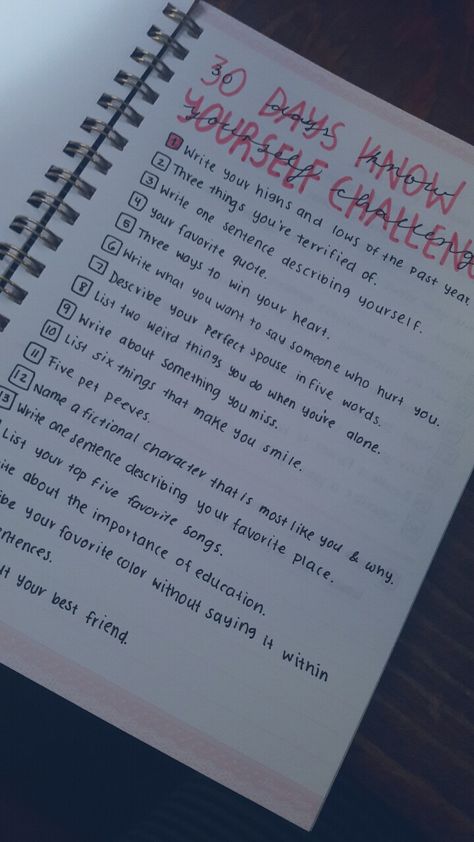 30 DAYS KNOW
30 days know
YOURSELF CHALLEN
yourself challeng
1 Write your highs and lows of the past year.
2 Three things you're terrified of.
3 Write one sentence describing yourself.
4 Your favorite quote.
5 Three ways to win your heart.
6 Write what you want to say someone who hurt you.
7 Describe your perfect spouse in five words.
8 List two weird things you do when you're alone.
9 Write about something you miss.
10 List six things that make you smile.
11 Five pet peeves.
12 Name a fictional character that is most like you & why.
13 Write one sentence describing your favorite place.
List your top five favorite songs.
ite about the importance of education.
ibe your favorite color without saying it within
entences.
ut your best friend.